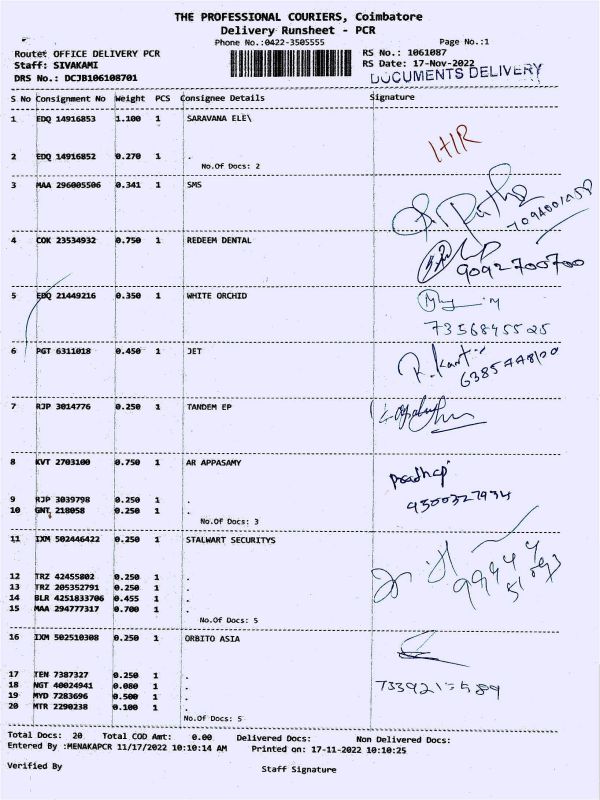 THE PROFESSIONAL COURIERS, Coimbatore
Delivery Runsheet - PCR
Phone No.:0422-3505555 Page No.:1
Route: OFFICE DELIVERY PCR RS No.: 1061087
Staff: SIVAKAMI RS Date: 17-Nov-2022
DRS No.: DCJB106108701 DOCUMENTS DELIVERY
S No Consignment No Weight PCS Consignee Details Signature
1 EDQ 14916853 1.100 1 SARAVANA ELE\
HR
2 EDQ 14916852 0.270 1 .
No.Of Docs: 2
3 MAA 296005506 0.341 1 SMS
4 COK 23534932 0.750 1 REDEEM DENTAL
9092700700
5 EDQ 21449216 0.350 1 WHITE ORCHID
7356845525
6 PGT 6311018 0.450 1 JET
7 RJP 3014776 0.250 1 TANDEM EP
8 KVT 2703100 0.750 1 AR APPASAMY
Pradhap
9300327934
9 RJP 3039798 0.250 1 .
10 GNT 218058 0.250 1 .
No.Of Docs: 3
11 IXM 502446422 0.250 1 STALWART SECURITYS
12 TRZ 42455802 0.250 1 .
13 TRZ 205352791 0.250 1 .
14 BLR 4251833706 0.455 1 .
15 MAA 294777317 0.700 1 .
No.Of Docs: 5
16 IXM 502510308 0.250 1 ORBITO ASIA
17 TEN 7387327 0.250 1 .
18 NGT 40024941 0.080 1 .
19 MYD 7283696 0.500 1 .
20 MTR 2290238 0.100 1 .
No.Of Docs: 5
Total Docs: 20 Total COD Amt: 0.00 Delivered Docs: Non Delivered Docs:
Entered By :MENAKAPCR 11/17/2022 10:10:14 AM Printed on: 17-11-2022 10:10:25
Verified By Staff Signature